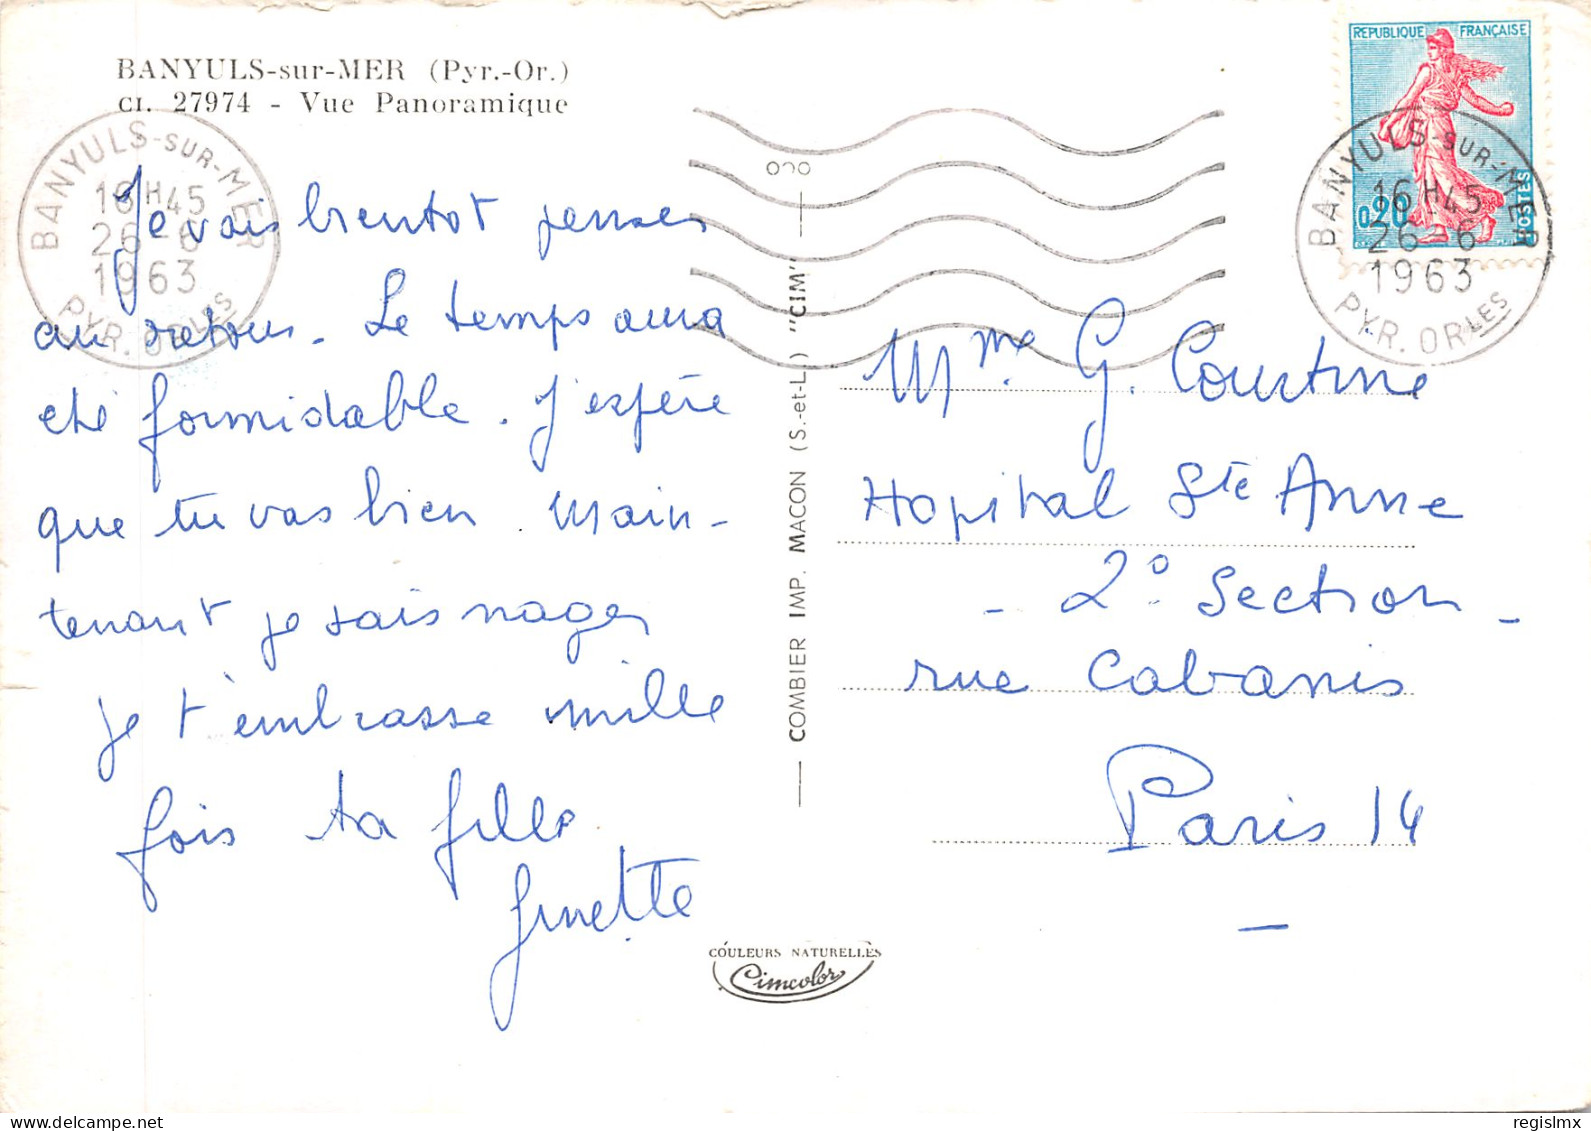 BANYULS-sur-MER (Pyr.-Or.)
CI. 27974 - Vue Panoramique
BANYULS-SUR-MER
16H45
26-6
1963
PYR. ORLES
Je vais bientot penser
au retour. Le temps aura
été formidable. J'espère
que tu vas bien. Main-
tenant je sais nager
je t'embrasse mille
fois ta fille
Ginette
COMBIER IMP. MACON (S.-et-L.) "CIM"
COULEURS NATURELLES
Cimcolor
REPUBLIQUE FRANÇAISE
0,20
POSTES
BANYULS-SUR-MER
16H45
26-6
1963
PYR. ORLES
Mme G. Courtine
Hopital Ste Anne
- 2° Section -
rue Cabanis
Paris 14
regislmx